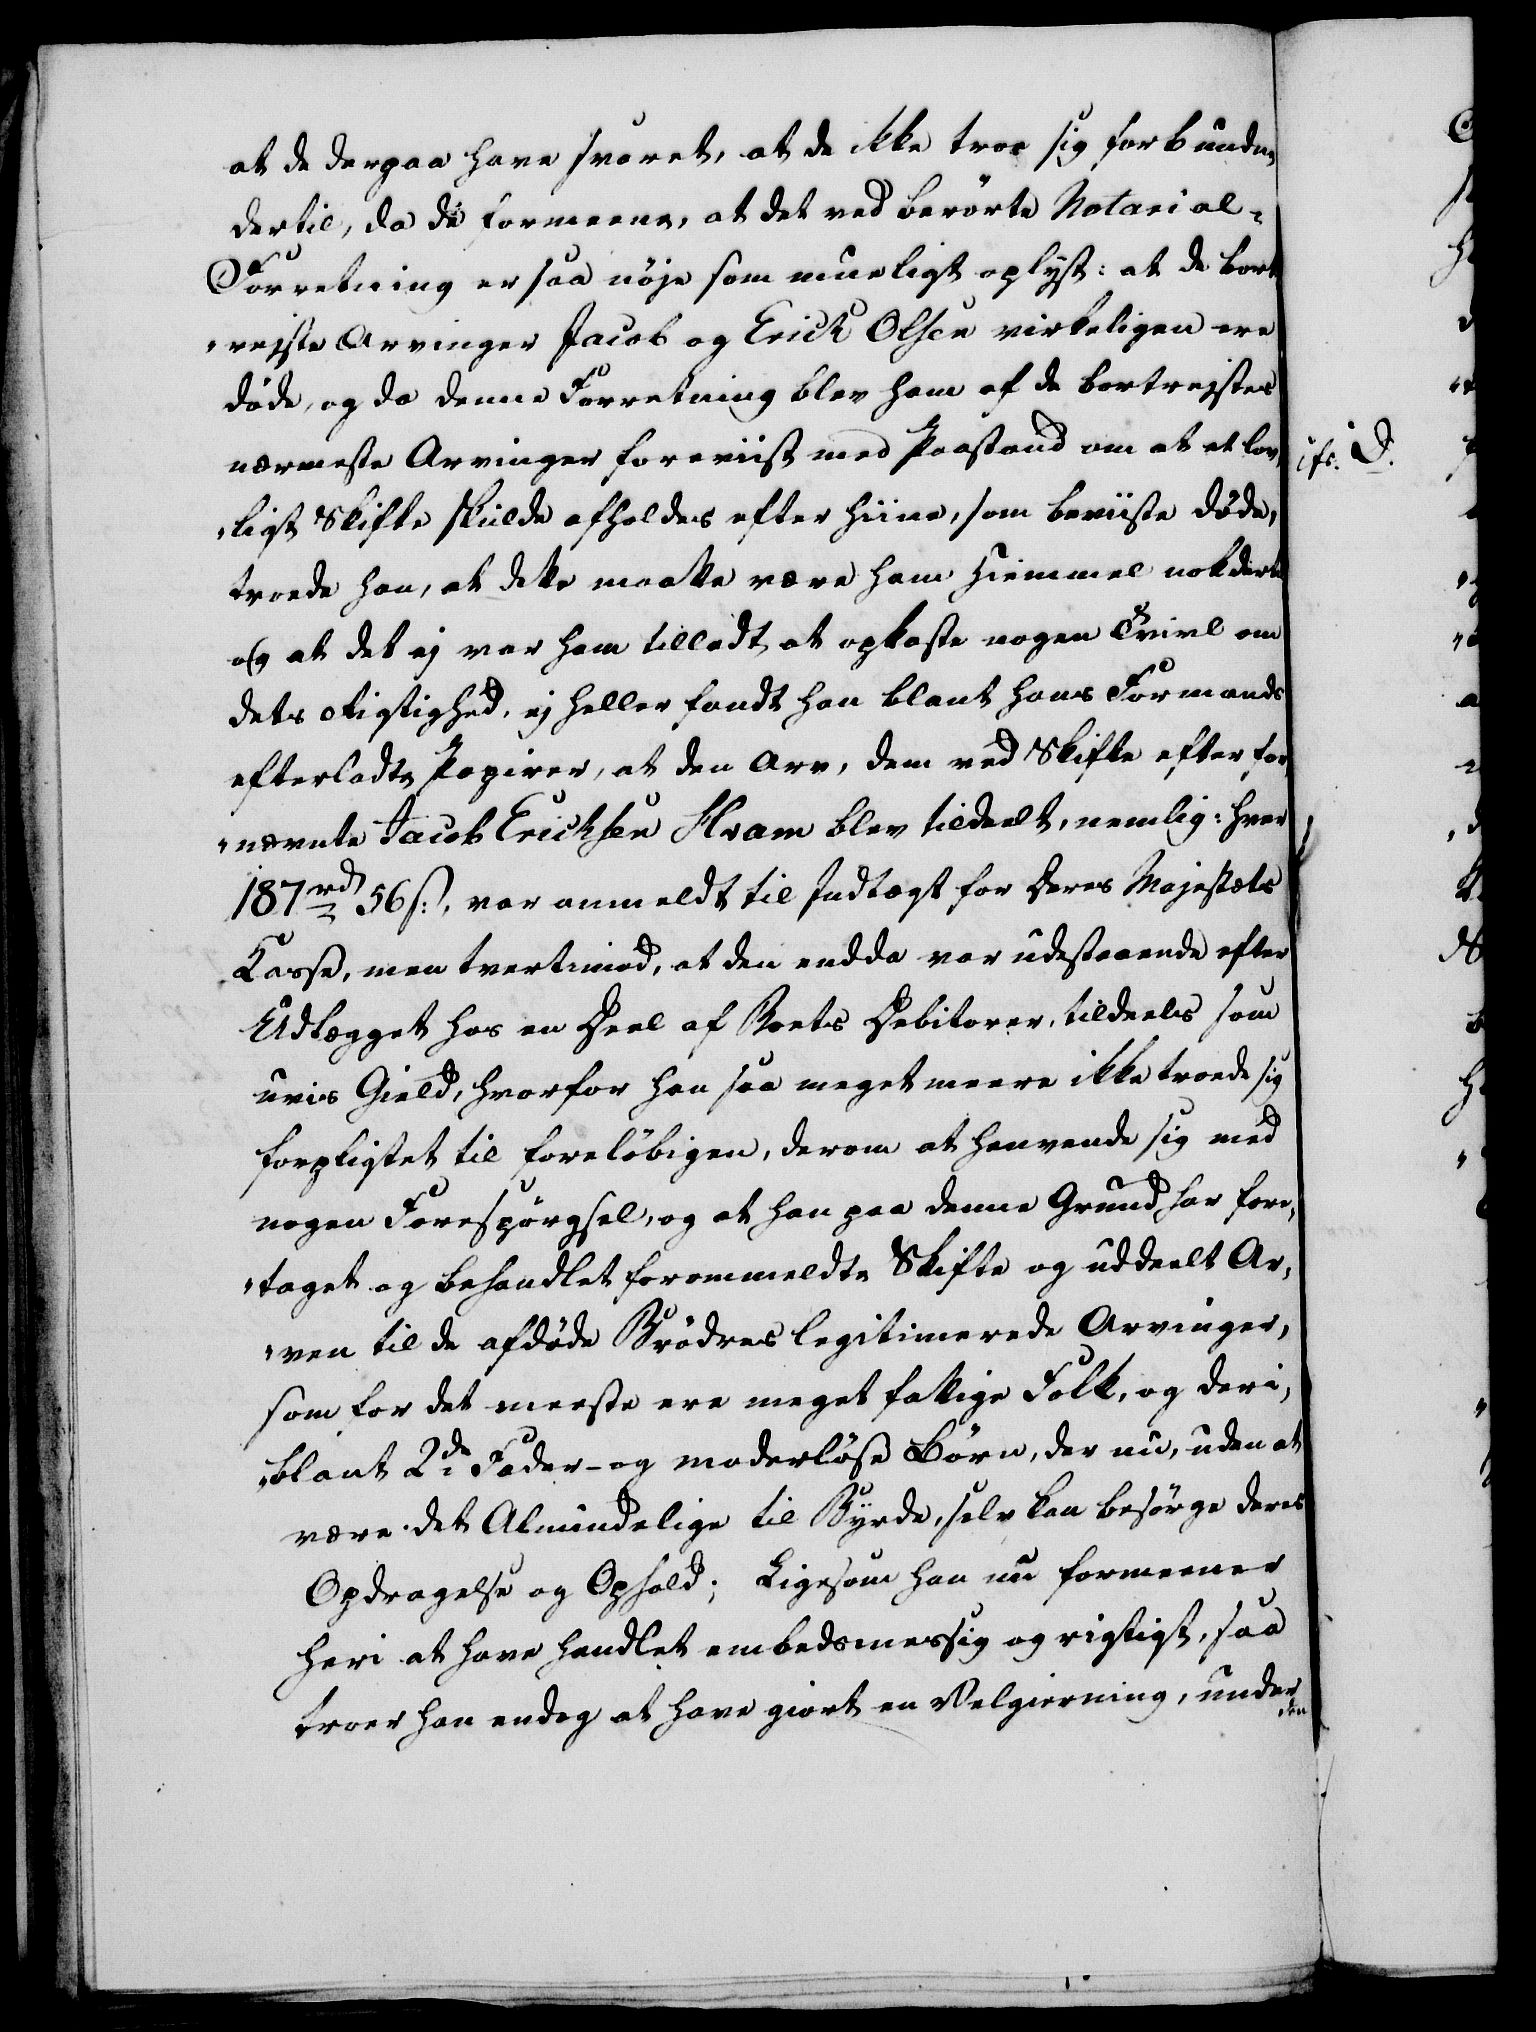 at de derpaa have svaret, at de ikke troe sig forbunden
dertil, da de formeene, at det ved berörte Notarial-
Forretning er saa nöje som mueligt oplyst: at de bort
rejste Arvinger Jacob og Erich Olsen virkeligen ere
döde, og da denne Forretning blev ham af de bortrejstes
nærmeste Arvinger foreviist med Paastand om at et lov
ligt Skifte skulde afholdes efter hiine, som beviiste döde,
troede han, at dette maatte være ham Hiemmel nok dertil
og at det ej var ham tilladt at opkaste nogen Tvivl om
dets Rigtighed, ej heller fandt han blant hans Formands
efterladte Papirer, at den Arv, dem ved Skifte efter for
nævnte Jacob Erichsen Hvam blev tildeelt, nemlig: hver
187 rd 56 s:, var anmeldt til Indtægt for Deres Majestæts
Casse, men tvertimod, at den endda var udestaaende efter
Udlægget hos en Deel af Boets Debitorer, tildeels som
uvis Gield, hvorfor han saa meget meere ikke troede sig
forpligtet til foreløbigen, derom at henvende sig med
nogen Forespörgsel, og at han paa denne Grund har fore,
taget og behandlet forommeldte Skifte og uddeelt Ar,
ven til de afdöde Brödres legitimerede Arvinger,
som for det meeste ere meget fattige Folk, og deri,
blant 2de Fader- og moderlöse Börn, der nu, uden at
være det Almindelige til Byrde, selv kan besörge deres
Opdragelse og Ophold; Ligesom han nu formeener
heri at have handlet embedsmessig og rigtigt, saa
troer han endog at have giort en Velgierning, under
den